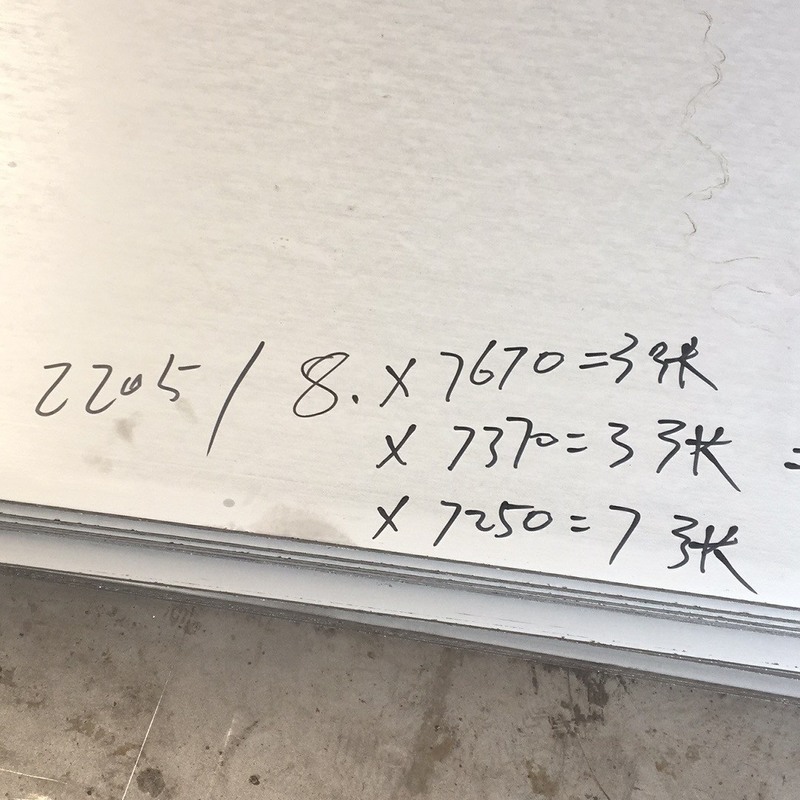 2205/ 8. × 7670 = 3 张
× 7370 = 3 张 =
× 7250 = 7 张